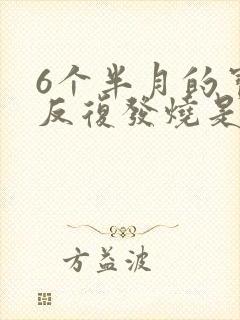 6个半月的
反復發燒是
方益波